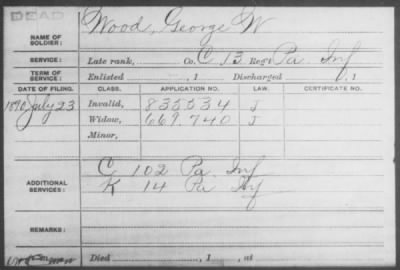 DEAD
NAME OF SOLDIER: Wood, George W
SERVICE: Late rank, Co. C, 13 Reg't Pa. Inf
TERM OF SERVICE: Enlisted , 1 Discharged , 1
DATE OF FILING. CLASS. APPLICATION NO. LAW. CERTIFICATE NO.
1890 July 23 Invalid, 835534 J
Widow, 669.740 J
Minor,
ADDITIONAL SERVICES: C 102 Pa. Inf
K 14 Pa Inf
REMARKS:
Died , 1 , at